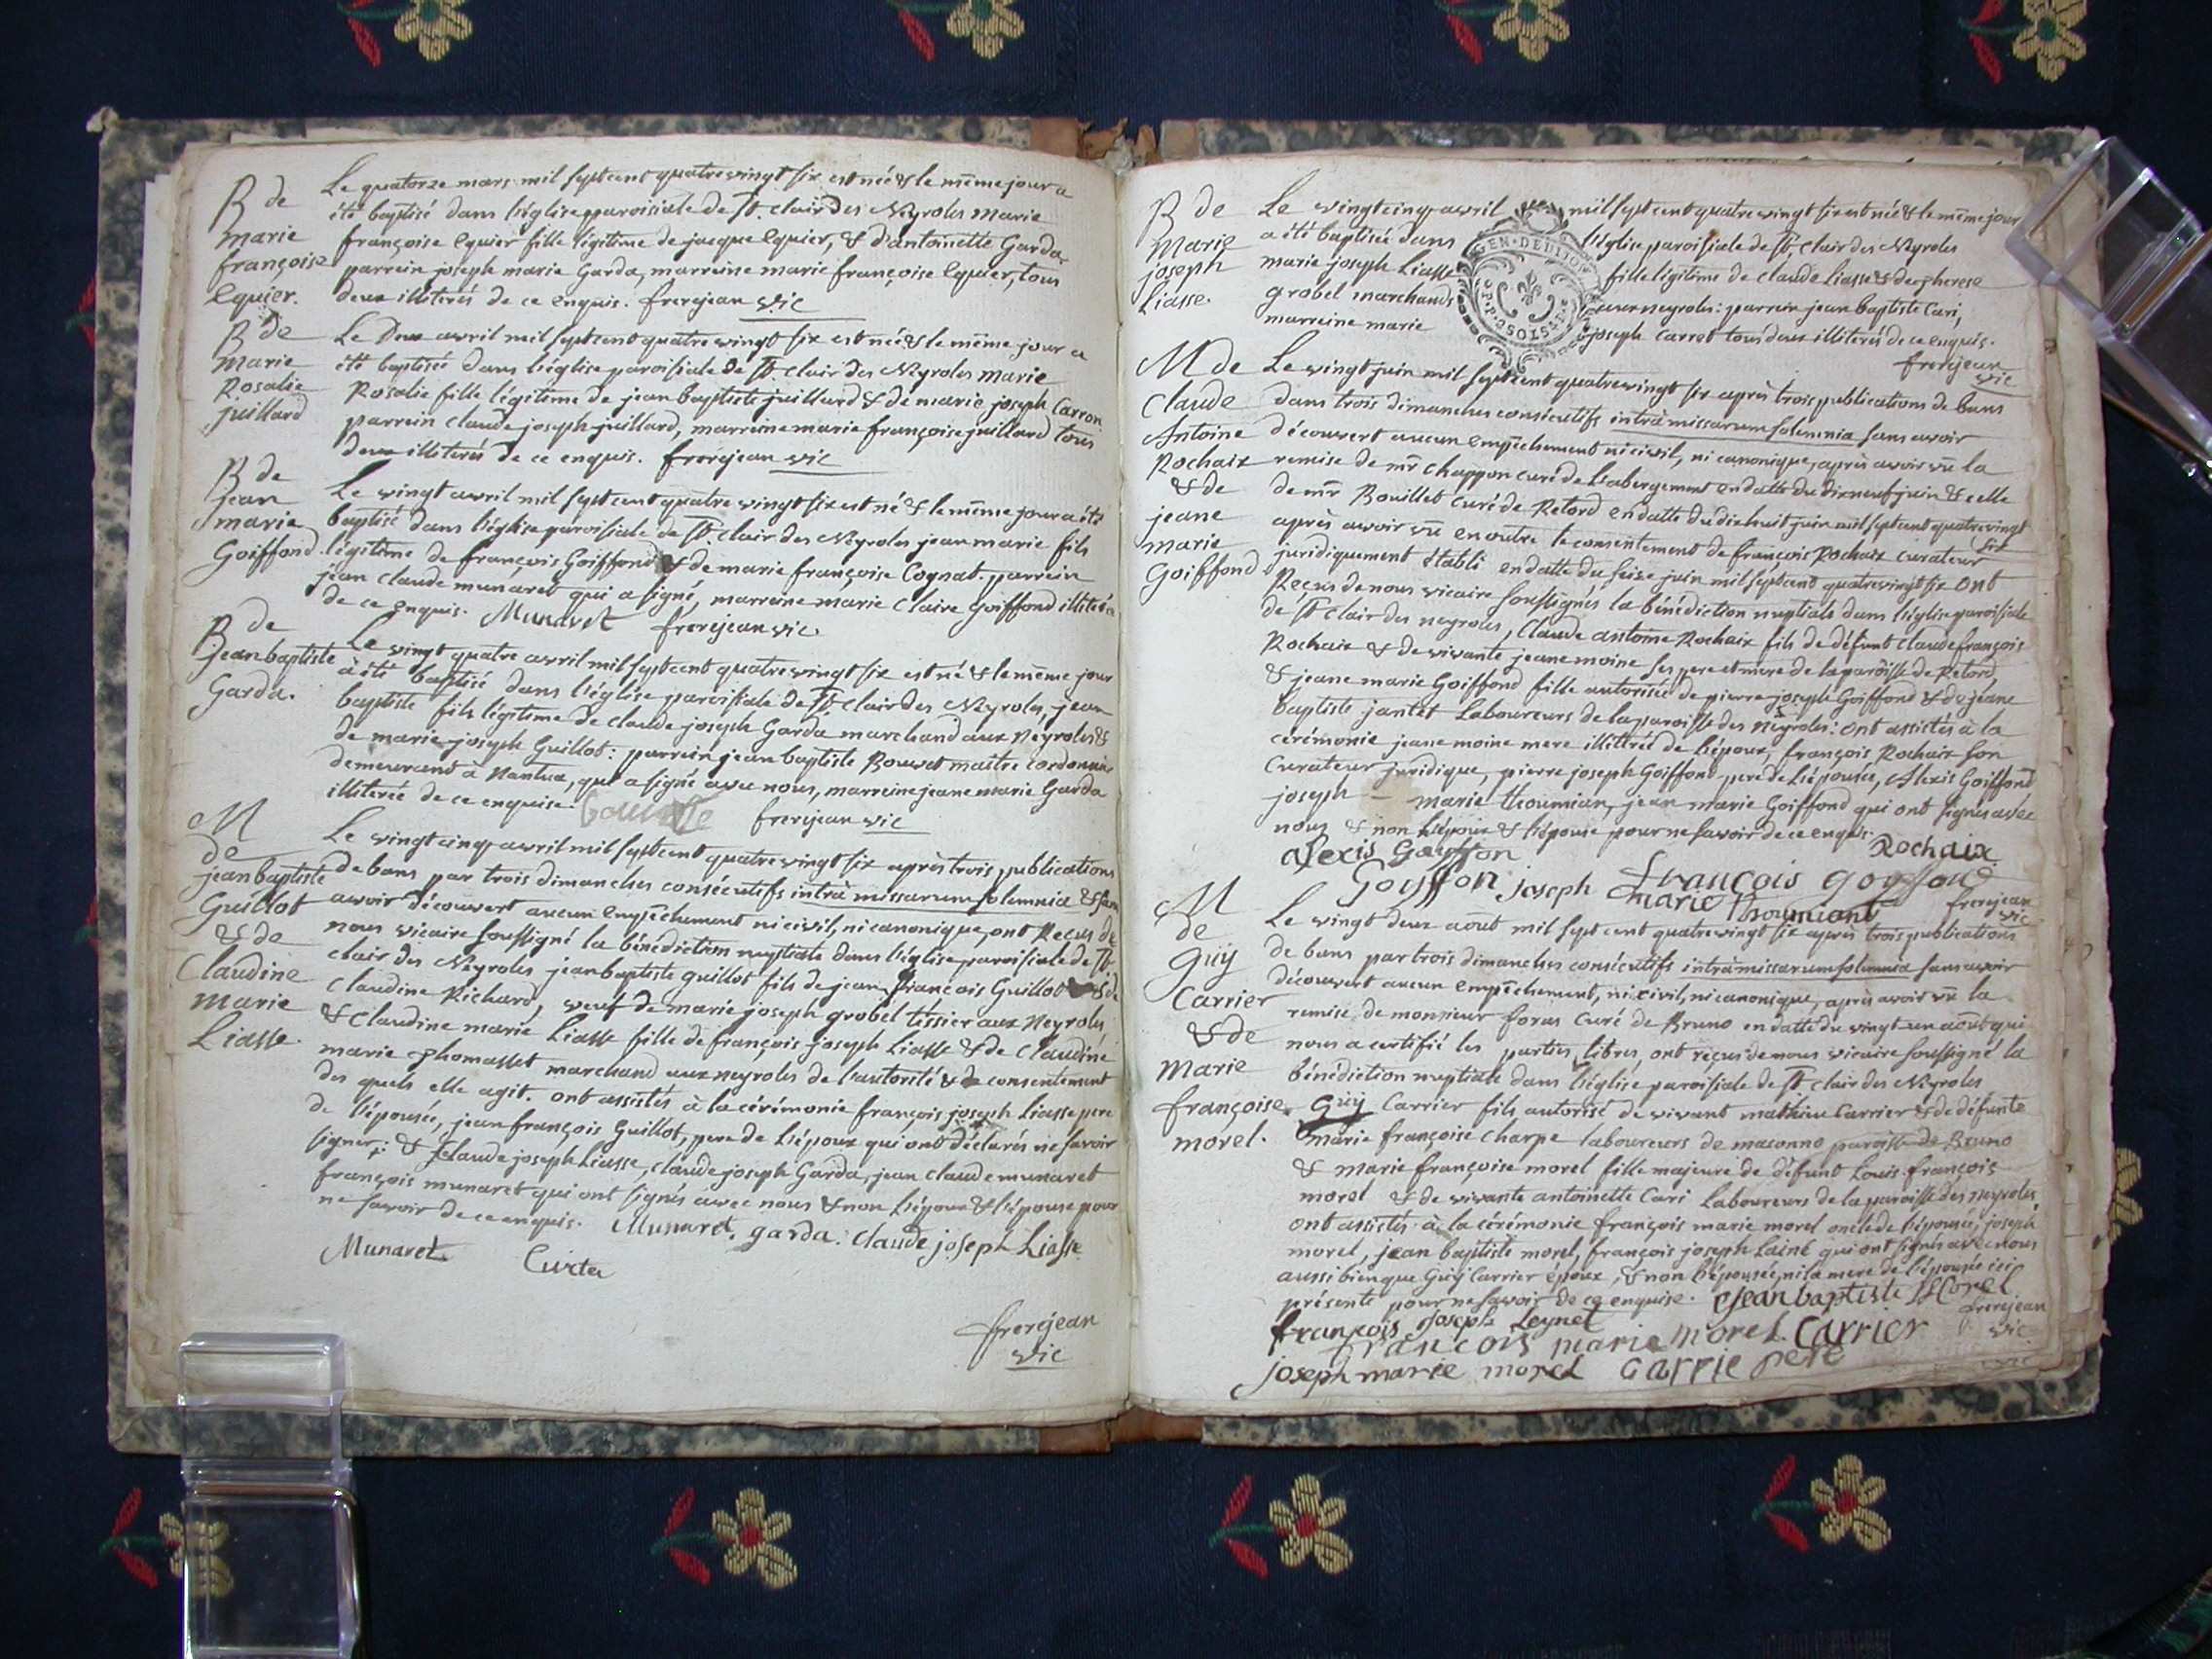 B de
marie
françoise
Equier.
Le quatorze mars mil septcent quatrevingt six est née & le même jour a
été baptisé dans l'église paroisiale de St. Clair des Neyroles marie
françoise Equier fille légitime de jacque Equier, & d'antoinette Garda,
parrein joseph marie Garda, marreine marie françoise Equier, tous
deux illiterés de ce enquis. frerejean vic
B de
marie
Rosalie
juillard
Le Deux avril mil septcent quatrevingt six est née & le même jour a
été baptisée dans l'église paroisiale de St. Clair des Neyroles marie
Rosalie fille légitime de jean baptiste juillard & de marie joseph Carron
parrein Claude joseph juillard, marreine marie françoise juillard tous
deux illiterés de ce enquis. frerejean vic
B de
jean
marie
Goiffond
Le vingt avril mil septcent quatre vingt six est né & le même jour a été
baptisé dans l'église paroisiale de St. Clair des Neyroles jean marie fils
légitime de françois Goiffond & de marie françoise Cognat. parrein
jean claude munaret qui a signé, marreine marie Claire Goiffond illiterée
de ce enquis. Munaret frerejean vic.
B de
jean baptiste
Garda.
Le vingt quatre avril mil septcent quatre vingt six est né & le même jour
à été baptisé dans l'église paroisiale de St. Clair des Neyroles, jean
baptiste fils légitime de Claude joseph Garda marchand aux Neyroles &
de marie joseph Guillot: parrein jean baptiste Bouvet maitre cordonnier
demeurant à Nantua, qui a signé avec nous, marreine jeane marie Garda
illiterée de ce enquise. frerejean vic
M
de
jean baptiste
Guillot
& de
Claudine
marie
Liasse.
Le vingt cinq avril mil septcent quatre vingt six après trois publications
de bans par trois dimanches consécutifs intrà missarum solemnia & sans
avoir découvert aucun empêchement ni civil, ni canonique, ont Reçus de
nous vicaire soussigné la bénédiction nuptiale dans l'église paroisiale de St.
clair des Neyroles jean baptiste guillot fils de jean françois Guillot & de
Claudine Richard, veuf de marie joseph grobel tissier aux Neyroles
& Claudine marie Liasse fille de françois joseph Liasse & de Claudine
marie Thomasset marchand aux neyroles de l'autorité & de consentement
des quels elle agit. ont assistés à la cérémonie françois joseph Liasse pere
de l'épousée, jean françois Guillot, pere de l'époux qui ont déclarés ne savoir
signer; & Claude joseph Liasse, claude joseph Garda, jean claude munaret
françois munaret qui ont signés avec nous & non l'époux & l'épouse pour
ne savoir de ce enquis. Munaret. garda. Claude joseph Liasse
Munaret Curta
frerejean
vic
B de
Marie
joseph
Liasse.
Le vingt cinq avril mil septcent quatre vingt six est née & le même jour
a été baptisée dans l'église paroisiale de St. Clair des Neyroles
marie joseph Liasse fille légitime de claude Liasse & de Therese
grobel marchands aux neyroles: parrein jean baptiste Cari,
marreine marie joseph Carret tous deux illiterés de ce enquis.
frerejean
vic
GEN. DE DIJON
M de
Claude
Antoine
Rochaix
& de
jeane
marie
Goiffond
Le vingt juin mil septcent quatrevingt six après trois publications de bans
dans trois dimanches consécutifs intrà missarum solemnia sans avoir
découvert aucun empêchement ni civil, ni canonique, après avoir vû la
remise de mr Chappon curé de L'abergement en datte du dixneuf juin & celle
de mr Bouillet Curé de Retord en datte du dixhuit juin mil septcent quatre vingt
six
après avoir vû en outre le consentement de françois Rochaix curateur
juridiquement établi en datte du seize juin mil septcent quatrevingt six ont
Reçus de nous vicaire soussignés la bénédiction nuptiale dans l'église paroisiale
de St Clair des neyroles, Claude antoine Rochaix fils de défunt claude françois
Rochaix & de vivante jeane moine ses pere et mere de la paroisse de Retord,
& jeane marie Goiffond fille autorisée de pierre joseph Goiffond & de jeane
baptiste jantet Laboureurs de la paroisse des Neyroles: ont assistés à la
cérémonie jeane moine mere illitrée de l'époux, françois Rochaix son
Curateur juridique, pierre joseph Goiffond pere de l'épousée, Alexis Goiffond
joseph — marie thoumian, jean marie Goiffond qui ont signés avec
nous & non l'époux & l'épouse pour ne savoir de ce enquis.
alexis Goyffon Rochaix
Goyffon joseph françois goyffond
marie thoumiant frerejean
vic
M
de
Guÿ
Carrier
& de
Marie
françoise
morel.
Le vingt deux août mil sept cent quatre vingt six après trois publications
de bans par trois dimanches consécutifs intrà missarum solemnia sans avoir
découvert aucun empêchement, ni civil, ni canonique, après avoir vû la
remise de monsieur foras Curé de Bruno en datte du vingt un août qui
nous a certifié les parties libres, ont reçus de nous vicaire soussigné la
bénédiction nuptiale dans l'église paroisiale de St clair des Neyroles
Guÿ Carrier fils autorisé de vivant mathieu Carrier & de défunte
marie françoise charpe laboureurs de maconno paroisse de Bruno
& marie françoise morel fille majeure de défunt Louis françois
morel & de vivante antoinette Cari Laboureurs de la paroisse des neyroles
ont assistés à la cérémonie françois marie morel oncle de l'épousée, joseph
morel, jean baptiste morel, françois joseph Lainé qui ont signés avec nous
aussi bien que Guÿ Carrier époux, & non l'épousée, ni la mere de l'épousée ici
présente pour ne savoir de ce enquise. Jean baptiste Morel
françois joseph Leynet frerejean
francois marie morel. Carrier vic
joseph marie morel carrie pere